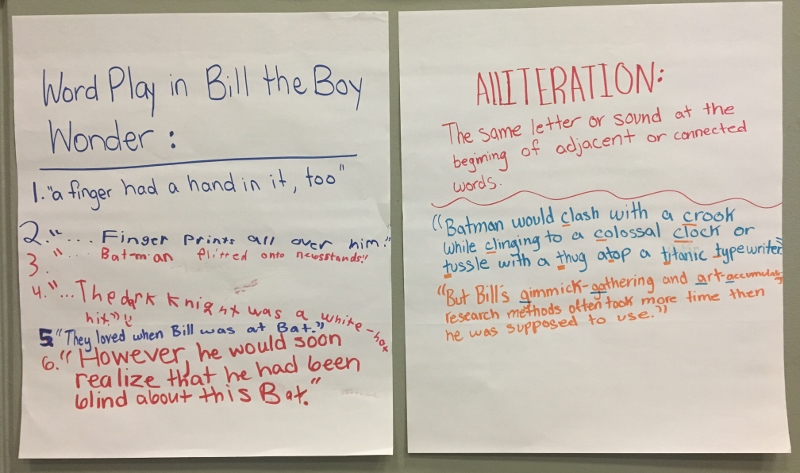 Word Play in Bill the Boy
Wonder:
1. "a finger had a hand in it, too"
2. ".... Finger prints all over him."
3. "... Bat-man flitted onto newsstands"
4. "...The dark knight was a white-hot
hit."
5. "They loved when Bill was at Bat."
6. "However he would soon
realize that he had been
blind about this Bat."
AllITERATION:
The same letter or sound at the
begining of adjacent or connected
words.
"Batman would clash with a crook
while clinging to a colossal clock or
tussle with a thug atop a titanic typewriter
"But Bill's gimmick-gathering and art-accumulating
research methods often took more time then
he was supposed to use."